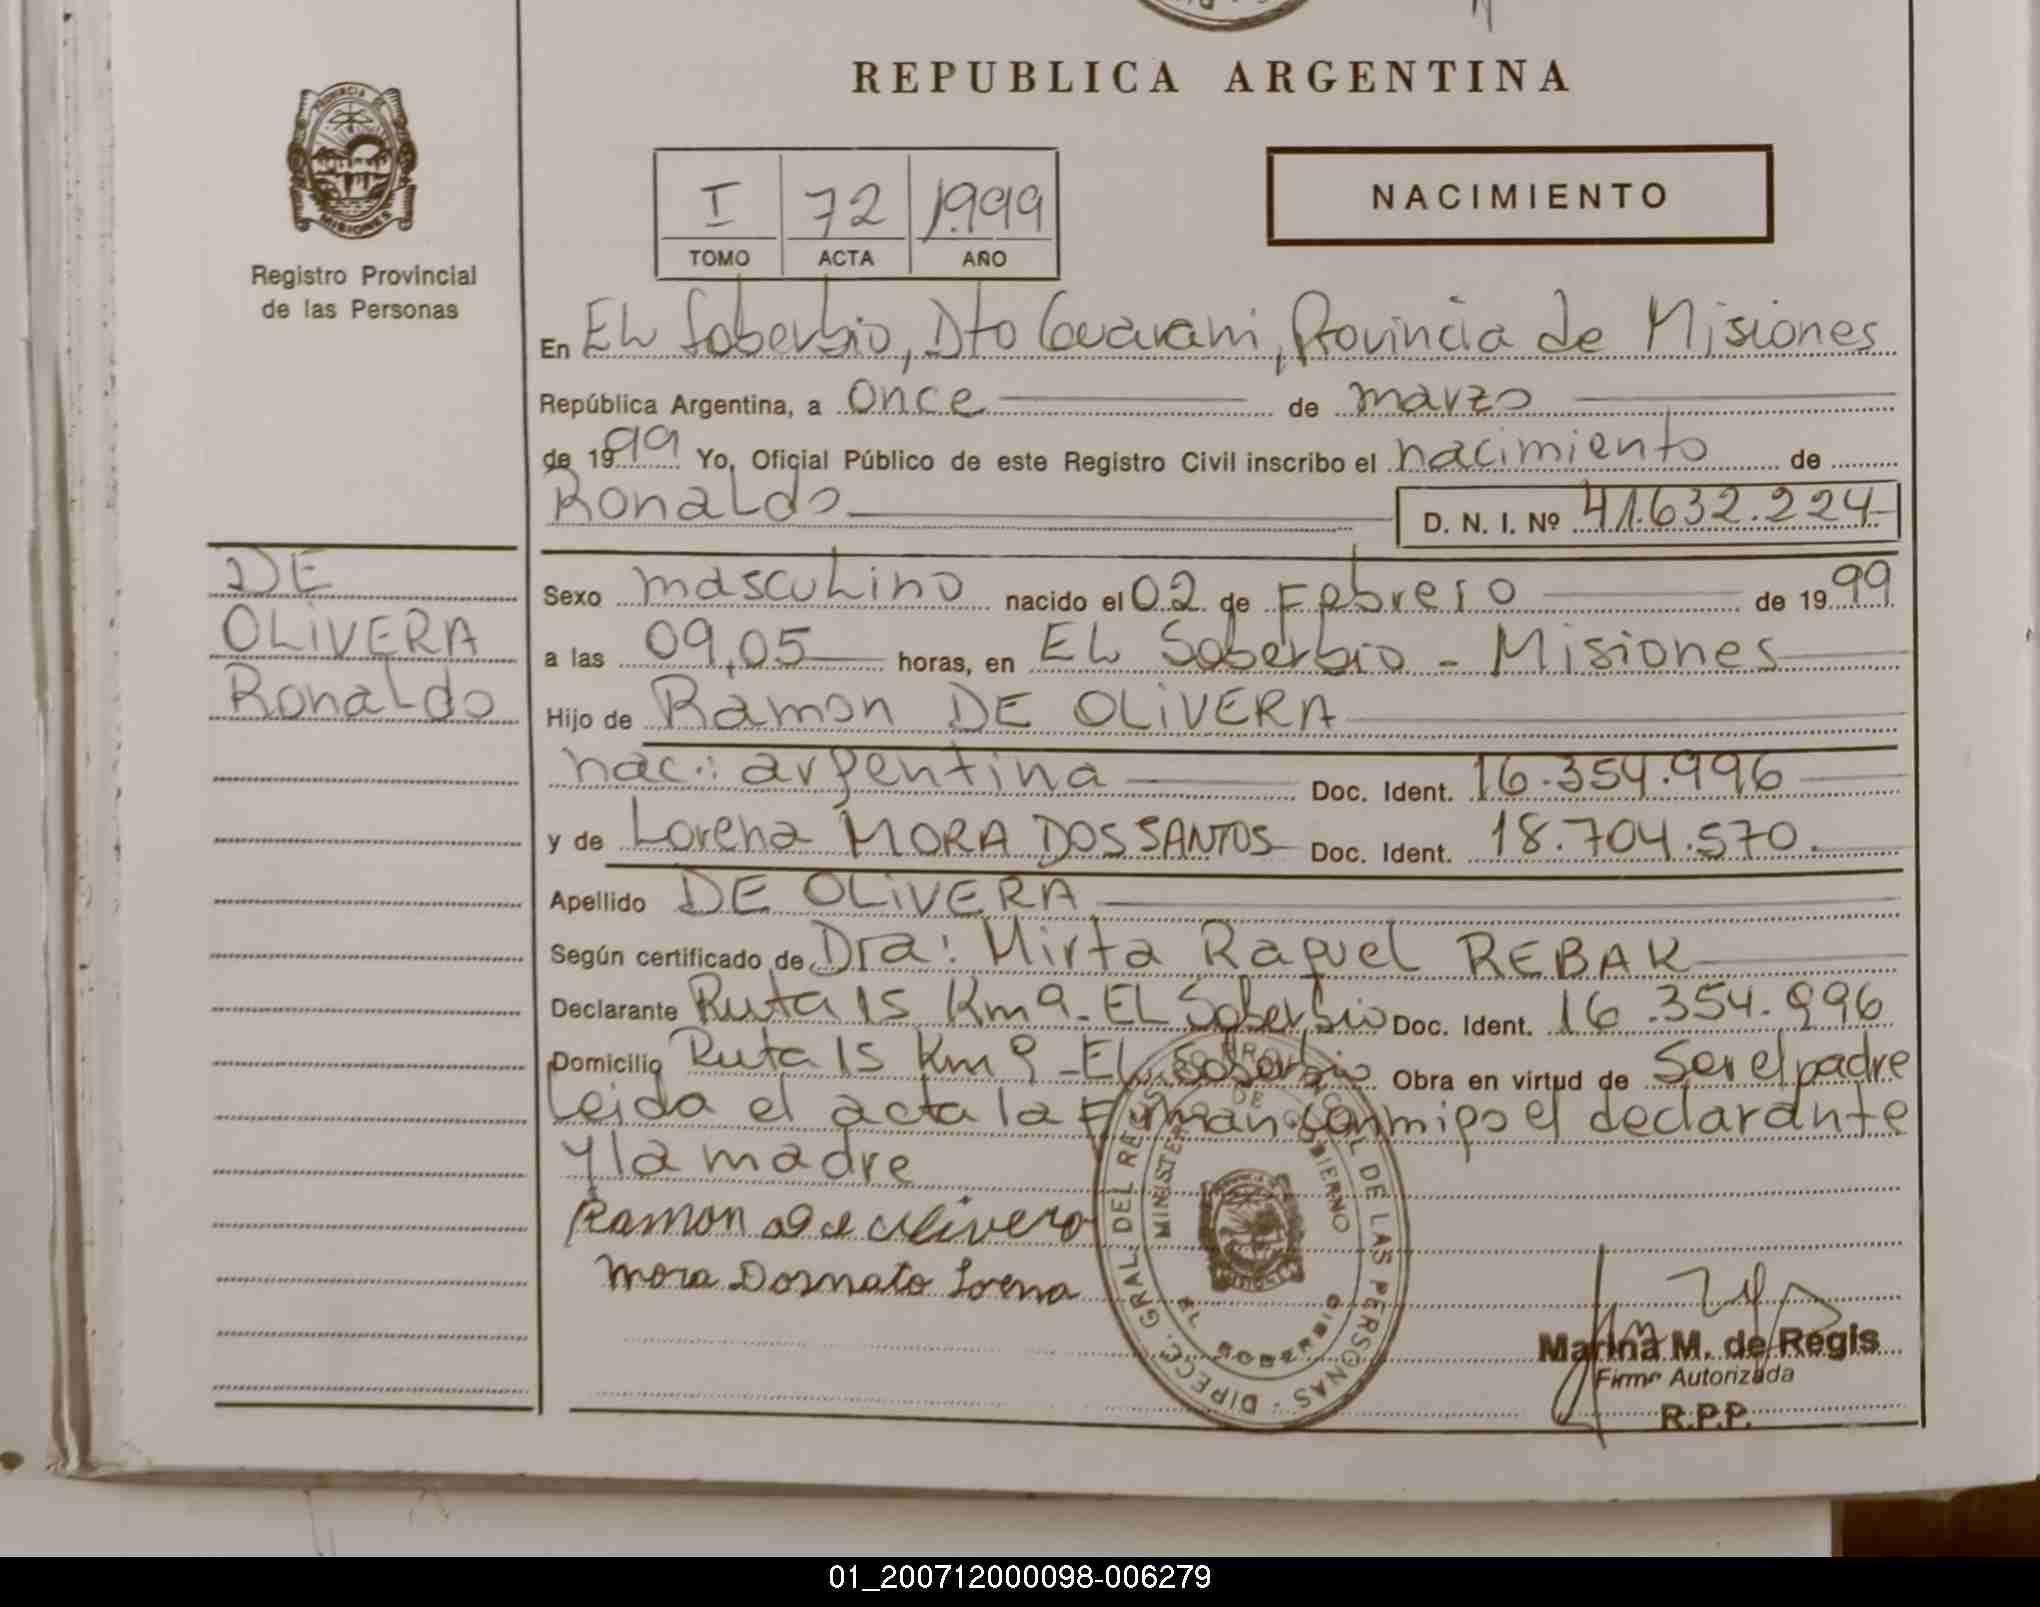 REPUBLICA ARGENTINA
PROVINCIA DE
MISIONES
Registro Provincial
de las Personas
I 72 1999
TOMO ACTA AÑO
NACIMIENTO
En EL Soberbio, Dto Guarani, Provincia de Misiones
República Argentina, a once de marzo
de 1999 Yo, Oficial Público de este Registro Civil inscribo el nacimiento de
Ronaldo D. N. I. Nº 41.632.224
DE
OLIVERA
Ronaldo
Sexo masculino nacido el 02 de Febrero de 1999
a las 09,05 horas, en EL Soberbio - Misiones
Hijo de Ramon DE OLIVERA
nac.: argentina Doc. Ident. 16.354.996
y de Lorena MORA DOS SANTOS Doc. Ident. 18.704.570.
Apellido DE OLIVERA
Según certificado de Dra: Mirta Raquel REBAK
Declarante Ruta 15 Km 9 - EL Soberbio Doc. Ident. 16.354.996
Domicilio Ruta 15 Km 9 - EL Soberbio Obra en virtud de Ser el padre
Leida el acta la Firman conmigo el declarante
y la madre
Ramon De Olivera
Mora Dosnato Lorena
DIRECC. GRAL DEL REG. PROVINCIAL DE LAS PERSONAS
MINISTERIO DE GOBIERNO
EL SOBERBIO
Marina M. de Regis
Firma Autorizada
R.P.P.
01_200712000098-006279